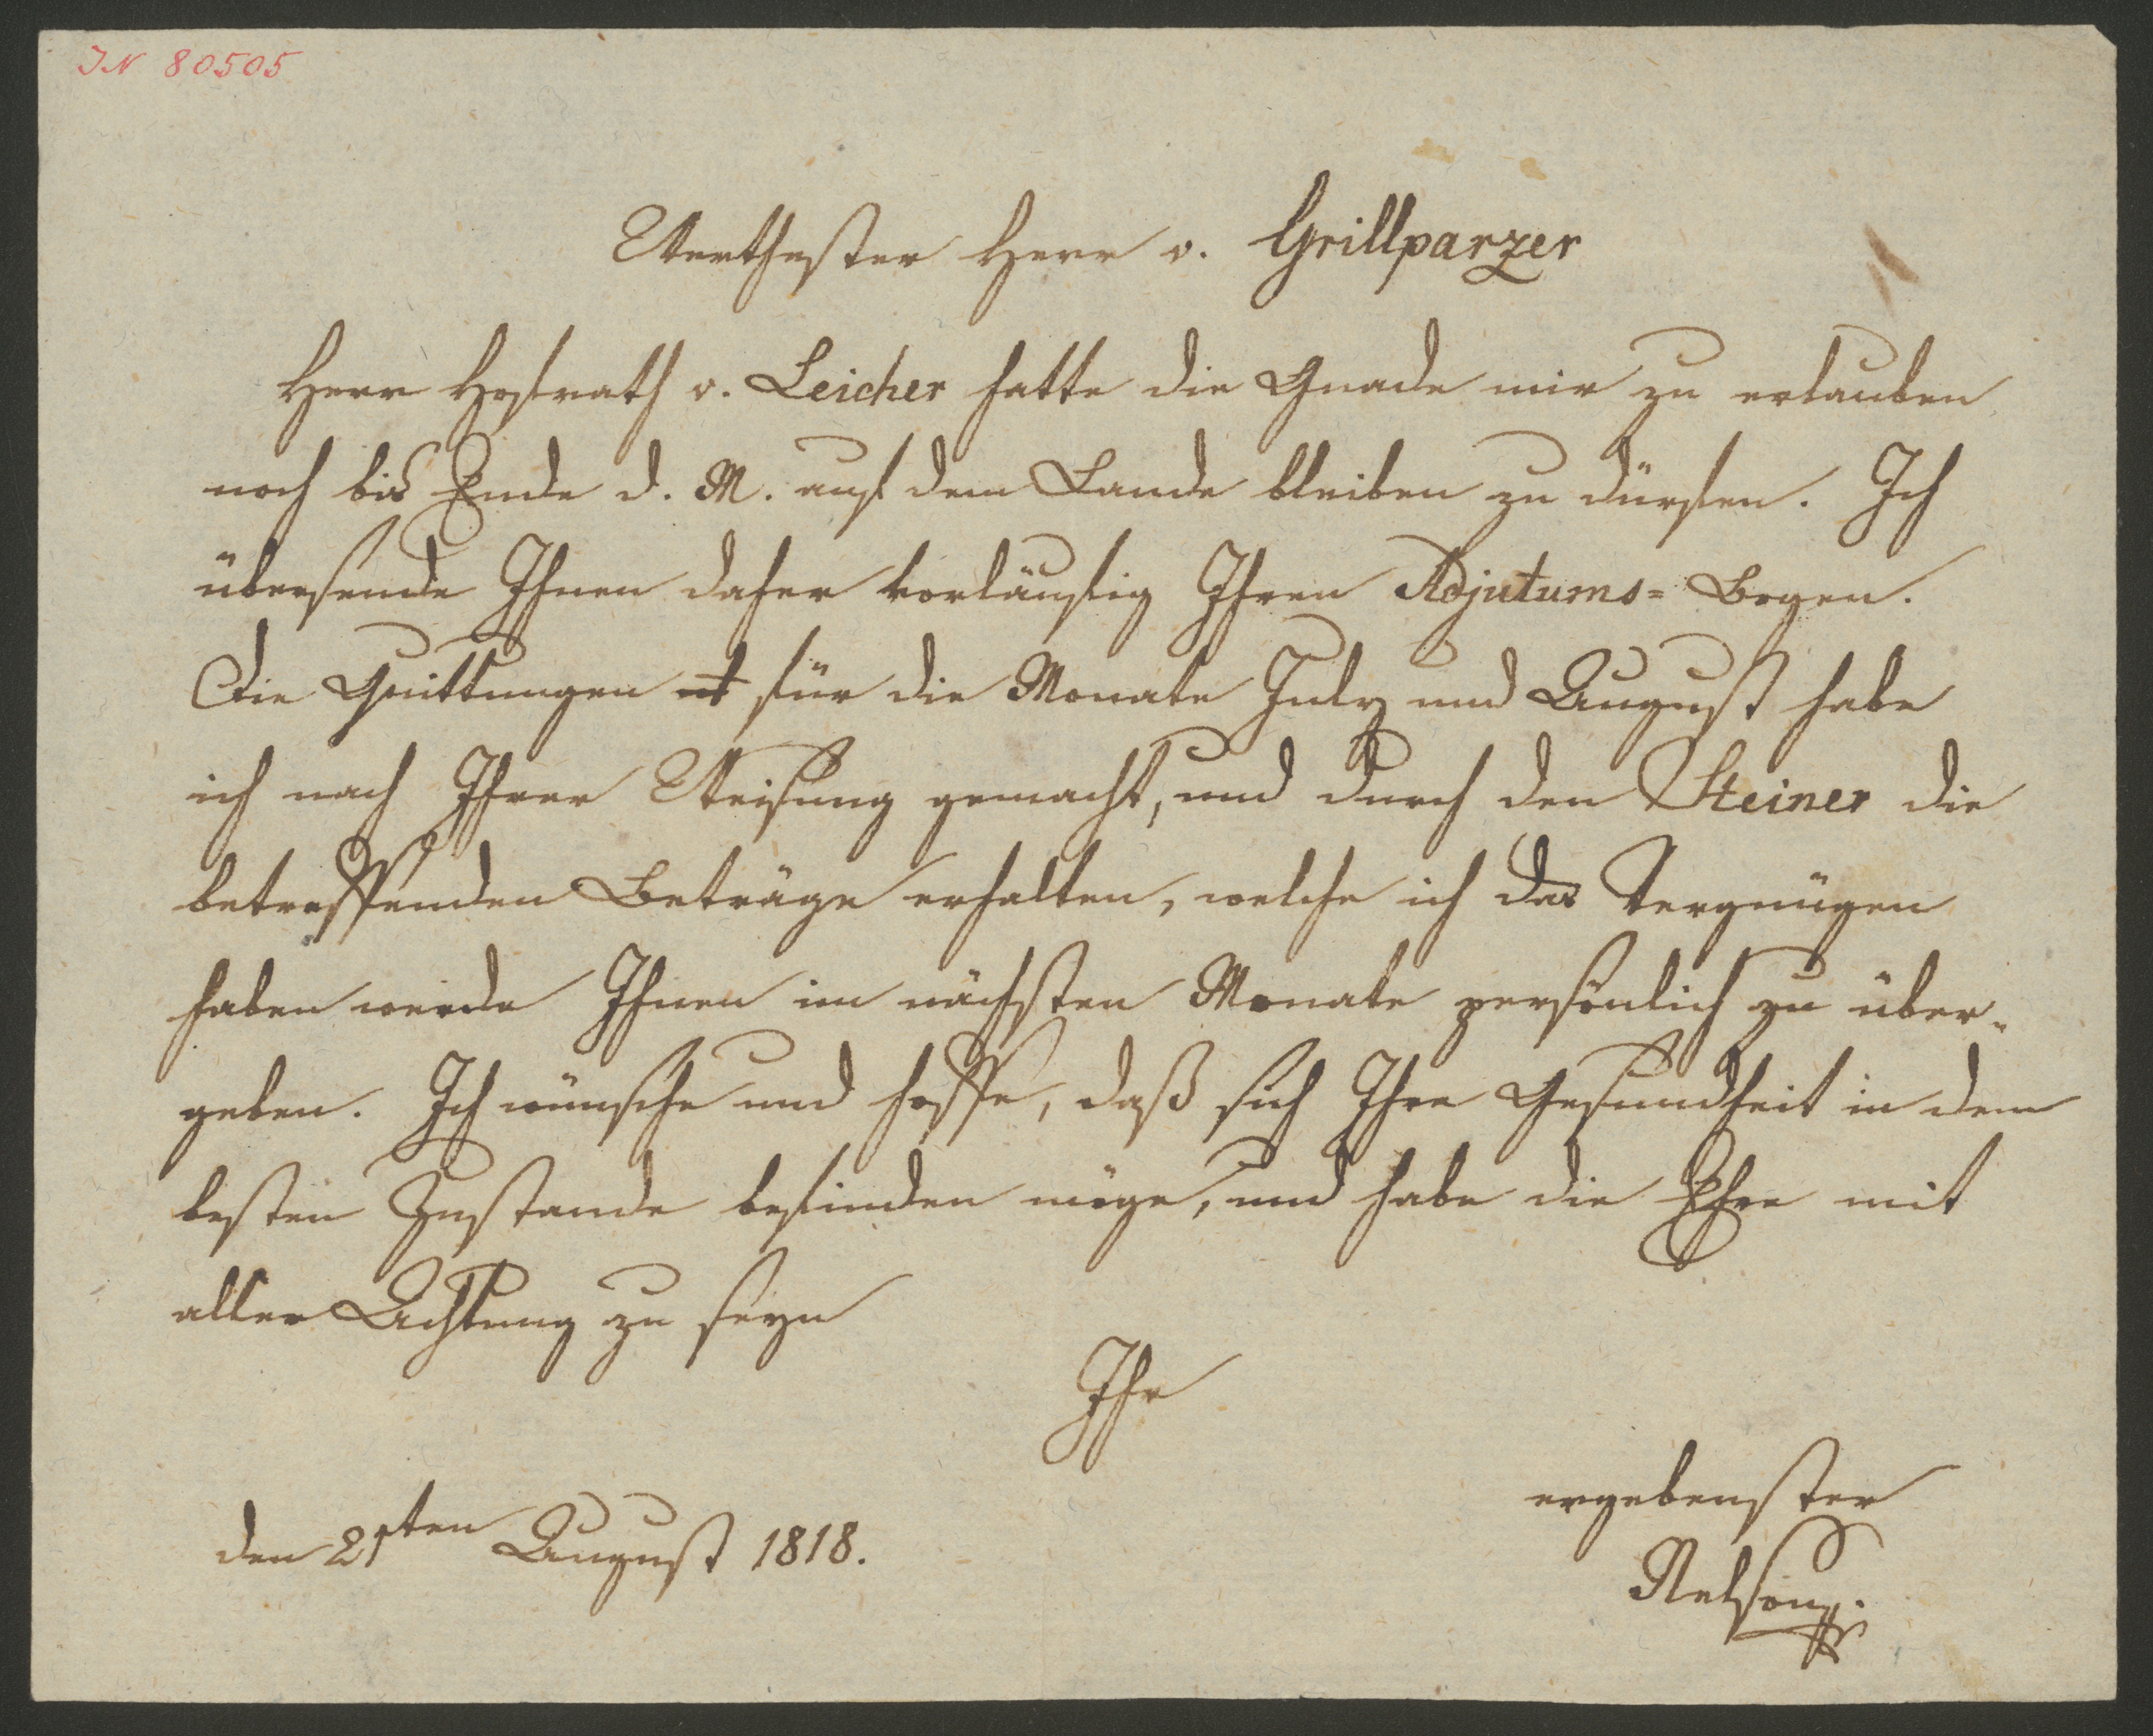 IN 80505
Werthester Herr v. Grillparzer
Herr Hofrath v. Leicher hatte die Gnade mir zu erlauben
noch bis Ende d. M. auf dem Lande bleiben zu dürfen. Ich
übersende Ihnen daher vorläufig Ihren Adjutums= Bogen.
Die Quittungen für die Monate July und August habe
ich nach Ihrer Weisung gemacht, und durch den Steiner die
betreffenden Beträge erhalten, welche ich das Vergnügen
haben werde Ihnen im nächsten Monate persönlich zu über=
geben. Ich wünsche und hoffe, daß sich Ihre Gesundheit in dem
besten Zustande befinden möge, und habe die Ehre mit
aller Achtung zu seyn
Ihr
ergebenster
den 21ten August 1818.
Nelson